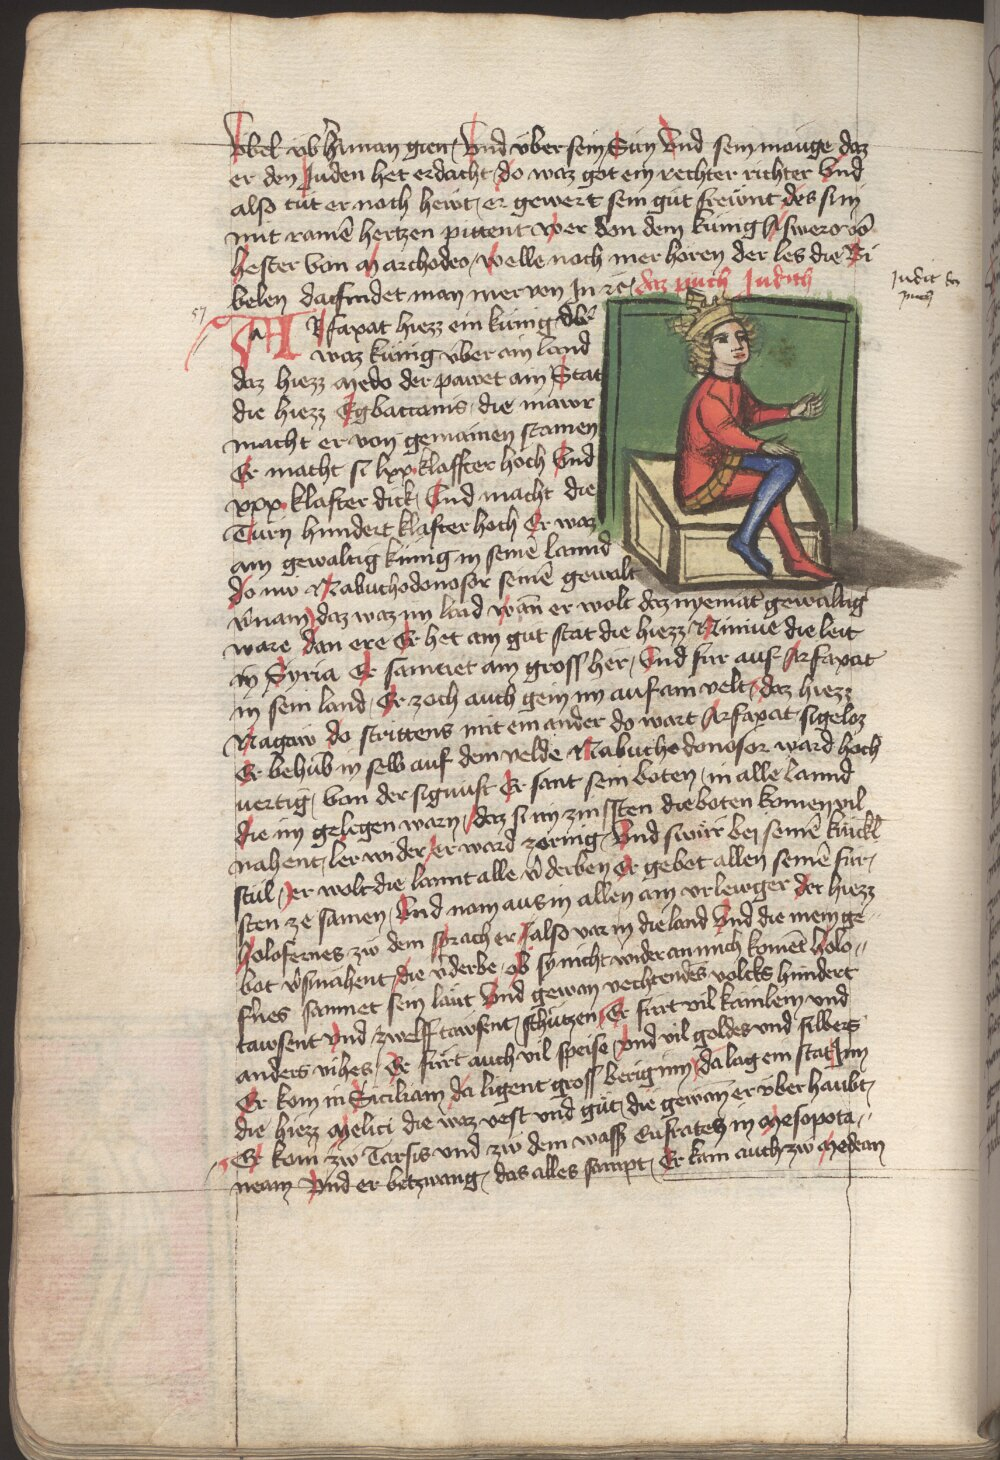 Vbel vb̄ haman gien / Vnd vber sein Sun Vnd sein mauge daz
er den Juden het erdacht / do waz got ein rechter richter Vnd
also tut er noch hewt / er gewert sein gut frewnt des si in
mit rainē hertzen pittent Wer von dem kunig Aswero vō
hester von Marchodeo / welle noch mer horen der les die Bi
belen da findet man mer von In ꝛc daz puch Judith
Judit daz
puch
57
ARfaxat hiezz ein kunig
waz kunig vber ain land
daz hiezz Medo der pawet ain Stat
die hiezz Egbattanis / die mawr
macht er von gemainen stainen
Er macht si lxx klaffter hoch Vnd
xxx klafter dick / Vnd macht die
Turn hundert klafter hoch Er waz
ain gewaltig kunig in seinē lannd
do nw Nabuchodonosor seinē gewalt
v̄nam / daz waz im laid wān er wolt daz nyemāt gewaltig
ware dan ere Er het ain gut stat die hiezz Niniue die leit
in Syria Er samnet ain gross her / Vnd fur auf Arfaxat
in sein land / Er zoch auch gein im auf ain velt / daz hiezz
Ragaw do strittens mit ein ander do wart Arfaxat sigeloz
Er behub in selb auf dem velde Nabuchodonosor ward hoch
uertig / von der signuft Er sant sein boten / in alle lannd
die im gelegen warn / daz si im zinssten die boten komen vil
nahent / ler wider / er ward zornig / Vnd swur bei seinē kuickl
stul / er wolt die lannt alle v̄derben Er gebot allen seinē fur /
sten ze samen / Vnd nam aus in allen ain vrlewger der hiezz
Holofernes / zw dem sprach er / also var in die land Vnd die mein ge-
bot v̄smahent / die v̄derbe / ob sy nicht wider an mich komēt holo-
f̄nes samnet sein laut Vnd gewan vechtendes volcks hundert
tawsent Vnd zwelff tawsent / schutzen / Er furt vil kamlein vnd
anders vihes / Er furt auch vil speise / Vnd vil goldes vnd silbers
Er kom in Siciliam / da ligent gross berig inn / da lag ein stat Inn
die hiezz Melici die waz vest vnd gut / die gewan er vber haubt /
Er kom zw Tarsis vnd zw dem wass Eufrates in Mesopota-
neam Vnd er betzwang / das alles sampt / Er kam auch zw Medean